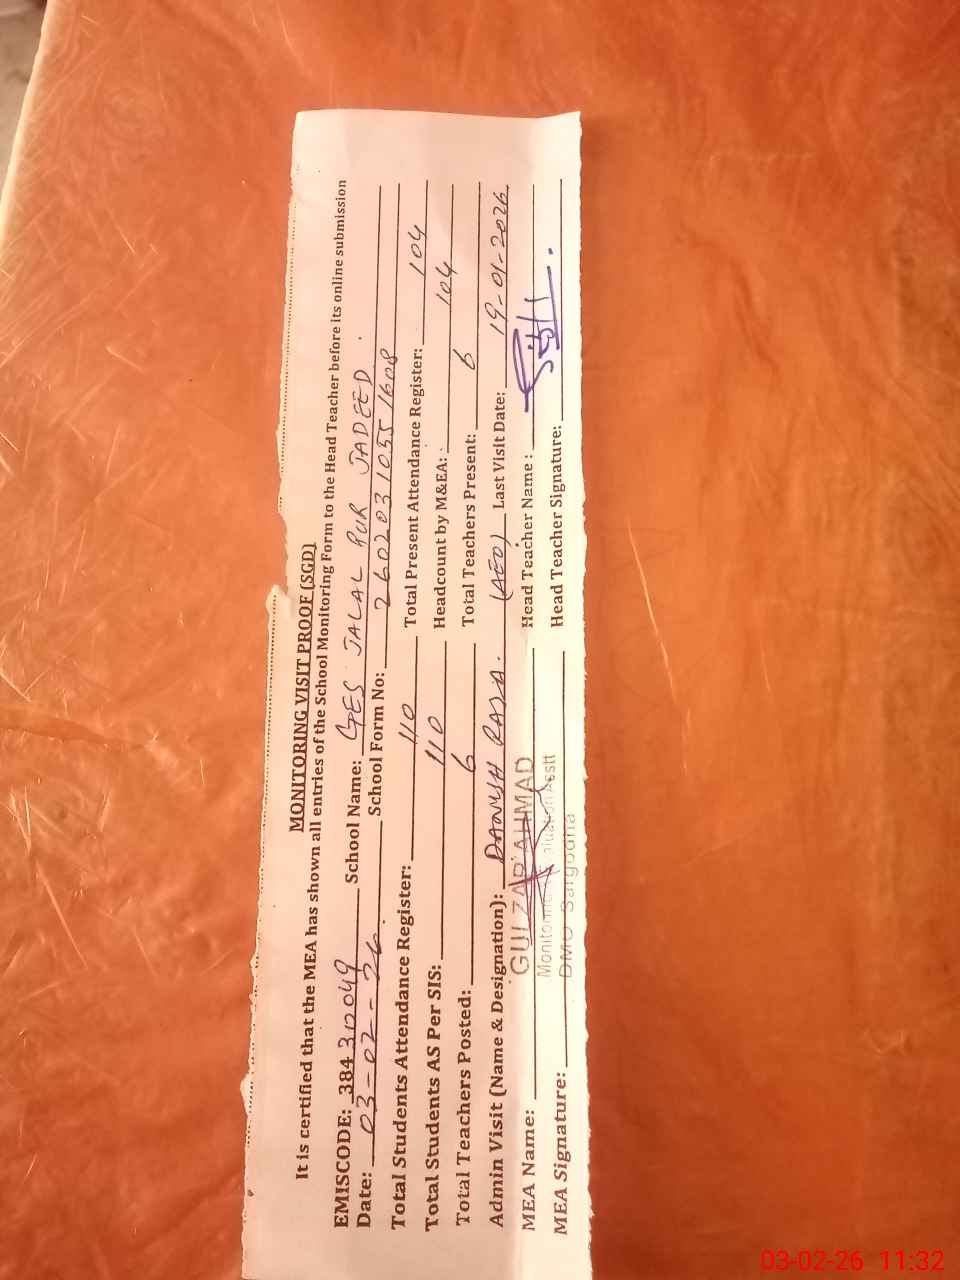 MONITORING VISIT PROOF (SGD)
It is certified that the MEA has shown all entries of the School Monitoring Form to the Head Teacher before its online submission
EMISCODE: 384 312049 School Name: GES JALAL PUR JADEED.
Date: 03-02-26. School Form No: 2602031055 1608
Total Students Attendance Register: 110 Total Present Attendance Register: 104
Total Students AS Per SIS: 110 Headcount by M&EA: 104
Total Teachers Posted: 6 Total Teachers Present: 6
Admin Visit (Name & Designation): DANISH RAZA. (AEO) Last Visit Date: 19-01-2026
MEA Name: GULZAR AHMAD Head Teacher Name:
Asstt
MEA Signature: DMO Sargodha Head Teacher Signature:
03-02-26 11:32